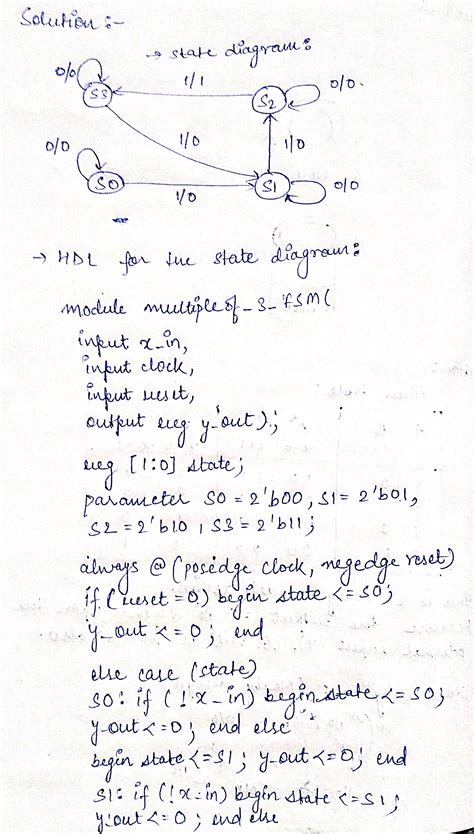 Solution :-
→ state diagram :
0/0
S3
1/1
S2
0/0
1/0
1/0
0/0
S0
1/0
S1
0/0
→ HDL for the state diagram :
module multiple of _ 3 _ FSM (
input x_in,
input clock,
input reset,
output reg y_out);
reg [1:0] state;
parameter S0 = 2'b00, S1 = 2'b01,
S2 = 2'b10, S3 = 2'b11;
always @ (posedge clock, negedge reset)
if (reset = 0) begin state <= S0;
y_out <= 0; end
else case (state)
S0: if (!x_in) begin state <= S0;
y_out <= 0; end else
begin state <= S1; y_out <= 0; end
S1: if (!x_in) begin state <= S1;
y_out <= 0; end else